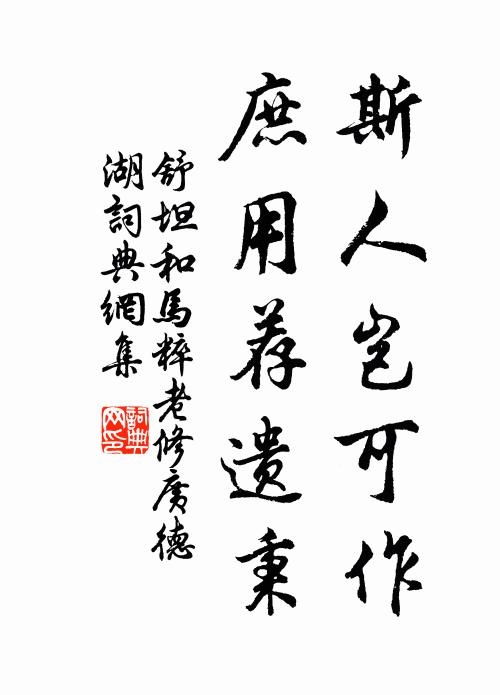 斯人岂可作
庶用荐遗秉
舒坦和馬粹老修廣德
湖詞典網集
詞典网印